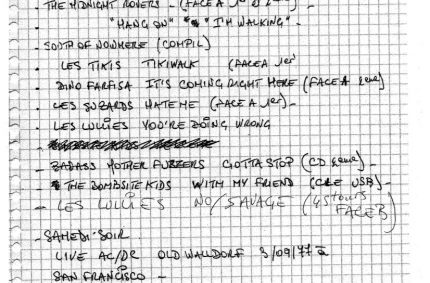 - THE MIDNIGHT ROVERS - (FACE A 1er et 2eme) -
"HANG ON" "I'M WALKING" -
- SOUTH OF NOWHERE (COMPIL)
- LES TIKIS TIKIWALK (FACE A 1er
- DINO FARFISA IT'S COMING RIGHT HERE (FACE A 2eme)
- LES SUZARDS HATE ME (FACE A 1er) -
- LES LULLIES YOU'RE DOING WRONG
- BADASS MOTHER FUZZERS GOTTA STOP (CD 2eme) -
- THE BOMBSITE KIDS WITH MY FRIEND (CLE USB) -
- LES LULLIES NO/SAVAGE (45 tours FACE B)
- SAMEDI-SOIR
LIVE AC/DC OLD WALDORF 3/09/77 à
SAN FRANCISCO -